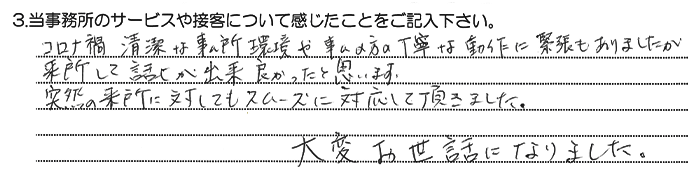 3.当事務所のサービスや接客について感じたことをご記入下さい。
コロナ禍 清潔な事ム所環境や事ムの方の丁寧な動作に緊張もありましたが
来所して話しが出来良かったと思います。
突然の来所に対してもスムーズに対応して頂きました。
大変お世話になりました。